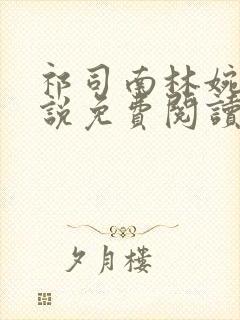 祁司南林婉
說免費閱讀
夕月樓